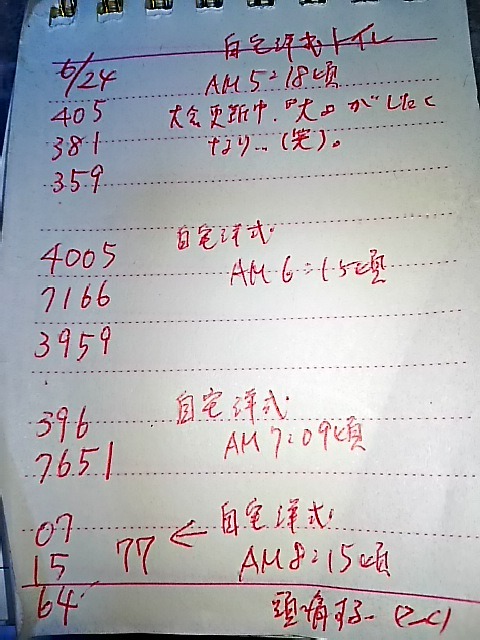 自宅洋式トイレ
6/24 AM5:18頃
405 大会更新中、『大』がしたく
381 なり…(笑)。
359
4005 自宅洋式
7166 AM6:15頃
3959
396 自宅洋式
7651 AM7:09頃
07 自宅洋式
15 77 ← AM8:15頃
64 頭痛する